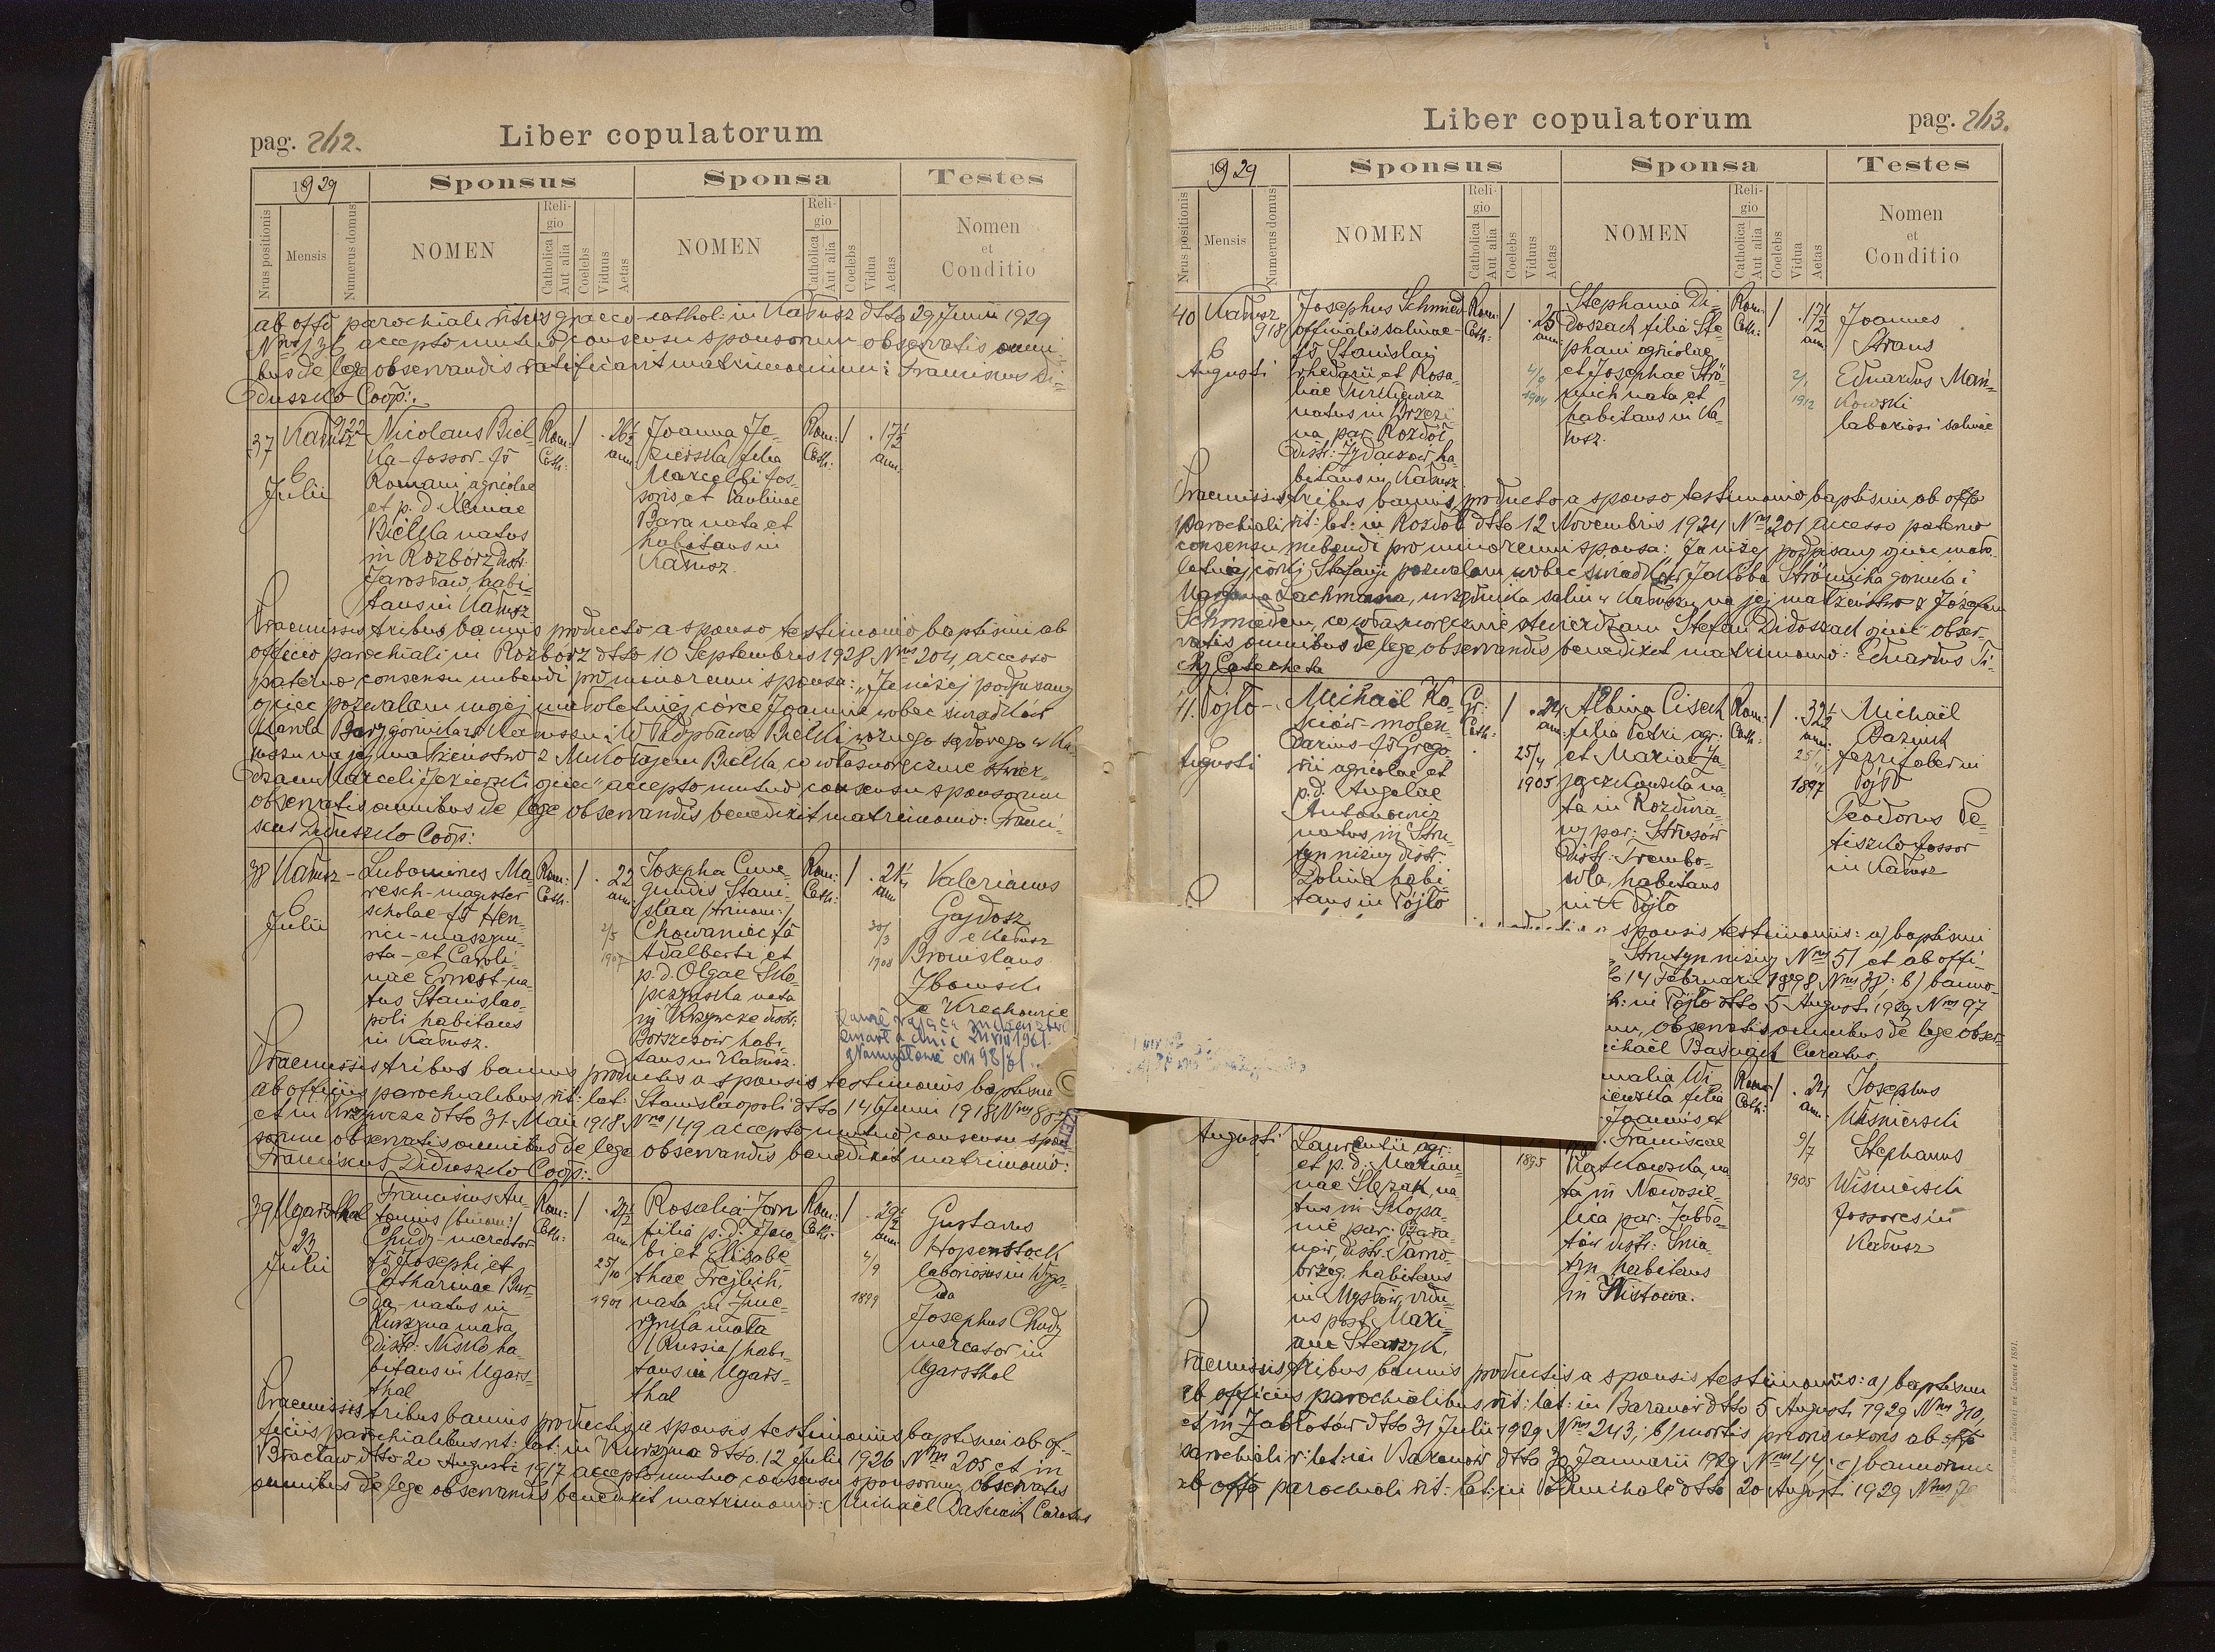 pag. 212.
Liber copulatorum
1929
Sponsus
Sponsa
Testes
Nrus positionis
Mensis
Numerus domus
NOMEN
Religio
Catholica
Aut alia
Coelebs
Viduus
Aetas
NOMEN
Religio
Catholica
Aut alia
Coelebs
Vidua
Aetas
Nomen
et
Conditio
ab offo parochiali ritus graeco-cathol: in Kałusz dtto 29 Junii 1929
Nro 136, accepto mutuo consensu sponsorum observatis omni-
bus de lege observandis ratificavit matrimonium: Franciscus Di-
duszko Coop:.
37
Kałusz 922
6
Julii
Nicolaus Biel-
ka - fossor - fs
Romani agricolae
et p. d. Xeniae
Bielka natus
in Rozbórz distr.
Jarosław, habi-
tans in Kałusz
Rom: Cath:
1
26½ ann
Joanna Je-
zierska filia
Marcelli fos-
soris et Paulinae
Bara nata et
habitans in
Kałusz.
Rom: Cath:
1
17½ ann.
Praemissis tribus bannis producto a sponso testimonio baptismi ab
officio parochiali in Rozbórz dtto 10 Septembris 1928 Nro 204, accesso
paterno consensu nubendi pro minorenni sponsa: „Ja niżej podpisany
ojciec pozwalam mojej małoletniej córce Joannie wobec świadków
Karola Bary górnika w Kałuszu i Władysława Bielki woznego sądowego w Ka-
łuszu na jej małżeństwo z Mikołajem Bielka, co własnoręcznie stwier-
dzam Marceli Jezierski ojciec" accepto mutuo consensu sponsorum
observatis omnibus de lege observandis benedixit matrimonio: Franci-
scus Diduszko Coop:
38
Kałusz -
6
Julii
Lubomirus Ma
resch - magister
scholae fs Hen-
rici - maszyni-
sta - et Caroli-
nae Ernest - na-
tus Stanislao-
poli habitans
in Kałusz.
Rom: Cath:
1
22 ann.
2/5
1907
Josepha Cune-
gundis Stani-
slaa /trinom:/
Chowaniec fa
Adalberti et
p. d. Olgae Sko-
pczyńska nata
in Krzywcze distr:
Borszczów habi-
tans in Kałusz.
Rom: Cath:
1
ann
1908
Valerianus
Gajdosz
e Kałusz
Bronislaus
e Krechowice
Praemissis tribus bannis productis a sponsis testimoniis baptismi
ab officiis parochialibus rit: lat: Stanislaopoli dtto 14 Junii 1918 Nro 887
et in Krzywcze dtto 31. Maii 1918 Nro 149 accepto mutuo consensu spon
sorum observatis omnibus de lege observandis benedixit matrimonio:
Franciscus Diduszko Coop:.
39
Ugarsthal
23
Julii
Franciscus An-
tonius /binom:/
Chudy - mercator
fs Josephi et
Catharinae Bur-
da - natus in
Kurzyna mała
distr: Nisko ha-
bitans in Ugars-
thal
Rom: Cath:
1
ann
25/10
1901
Rosalia Jorn
filia p. d. Jaco-
bi et Elisabe-
thae Frejlich,
nata in
mała
/Russia/ habi-
tans in Ugars-
thal
Rom: Cath:
1
29½ ann
4/9
1899
Gustavus
Hopenstock
laboriosus in
Josephus Chudy
mercator in
Ugarsthal
Praemissis tribus bannis productis a sponsis testimoniis baptismi ab of-
ficiis parochialibus rit: lat: in Kurzyna dtto. 12 Julii 1926 Nro 205 et in
Bracław dtto 20 Augusti 1917 accepto mutuo consensu sponsorum observatis
omnibus de lege observandis benedixit matrimonio: Michaël Baściak Curatus
pag. 213.
Liber copulatorum
1929
Sponsus
Sponsa
Testes
Nrus positionis
Mensis
Numerus domus
NOMEN
Religio
Catholica
Aut alia
Coelebs
Viduus
Aetas
NOMEN
Religio
Catholica
Aut alia
Coelebs
Vidua
Aetas
Nomen
et
Conditio
40
Kałusz
918
6
Augusti
Josephus Schmied
officialis salinae -
fs Stanislai
rhedarii et Rosa-
liae Turkiewicz
natus in Brzezi-
na par. Rozdół
distr: Żydaczów, ha-
bitans in Kałusz
Rom: Cath:
1
25 ann:
4/9
1904
Stephania Di-
doszak filia Ste-
phani agricolae
et Josephae Strö-
mich nata et
habitans in Ka-
łusz.
Rom: Cath:
1
17½ ann
2/1
1912
Joannes
Straus
Eduardus Mań-
kowski
laboriosi salinae
Praemissis tribus bannis, producto a sponso testimonio baptismi ab offo
parochiali rit: lat: in Rozdół dtto 12 Novembris 1924 Nro 201, accesso paterno
consensu nubendi pro minorenni sponsa: Ja niżej podpisany ojciec mało-
letniej córki Stefanji pozwalam wobec świadków Jakóba Strömicha górnika i
Lachmana, urzędnika salin w Kałuszu na jej małżeństwo z Józefem
Schmiedem, co własnoręcznie stwierdzam Stefan Didoszak ojciec obser-
vatis omnibus de lege observandis benedixit matrimonio: Eduardus Ti-
chy Catecheta
41.
Pójło -
6
Augusti
Michaël Ko-
sków - molen-
darius fs Grego-
rii agricolae et
p. d. Angelae
Antonowicz
natus in Stru-
tyn niżny distr.
Dolina habi-
tans in Pójło
Gr: Cath:
1
24 ann:
25/4
1905
Albina Cisek
filia Petri agr:
et Mariae Ja-
jączkowska na-
ta in Rozdwia-
ny par: Strusów
distr: Trembo-
wla, habitans
in Pójło
Rom: Cath:
1
32½ ann:
1897
Michaël
Baziuk
ferri faber in
Pójło
Teodorus De-
tiszko fossor
in Kałusz
sponsis testimoniis: a) baptismi
Strutyn niżny Nro 51 et ab offi-
14 Februarii 1898 Nro 38: b) banno-
in Pójło dtto 5 Augusti 1929 Nro 97
observatis omnibus de lege obser-
ichaël Baściak Curatus
Augusti
Laurentii agr:
et p. d: Marian-
nae Ślęzak, na-
tus in Skopa-
nie par: Bara-
nów, distr: Tarno-
brzeg, habitans
in Mysłów, vidu-
us post Mari-
am
1895
malia Wi-
niewska filia
Joannis et
Franciscae
Kątkowska, na-
ta in Nowosie-
lica par: Zabło-
tów distr: Śnia-
tyn habitans
in Wistowa.
Rom: Cath:
1
24 ann.
9/7
1905
Josephus
Wiśniewski
Stephanus
Wiśniewski
fossores in
Kałusz
Praemissis tribus bannis productis a sponsis testimoniis: a) baptismi
ab officiis parochialibus rit: lat: in Baranów dtto 5 Augusti 1929 Nro 310,
et in Zabłotów dtto 31 Julii 1929 Nro 243; b) mortis prioris uxoris ab offo
parochiali r: lat: in Baranów dtto 30 Januarii 1929 Nro 44; c) bannorum
ab offo parochiali rit: lat: in Podmichale dtto 20 Augusti 1929 Nro